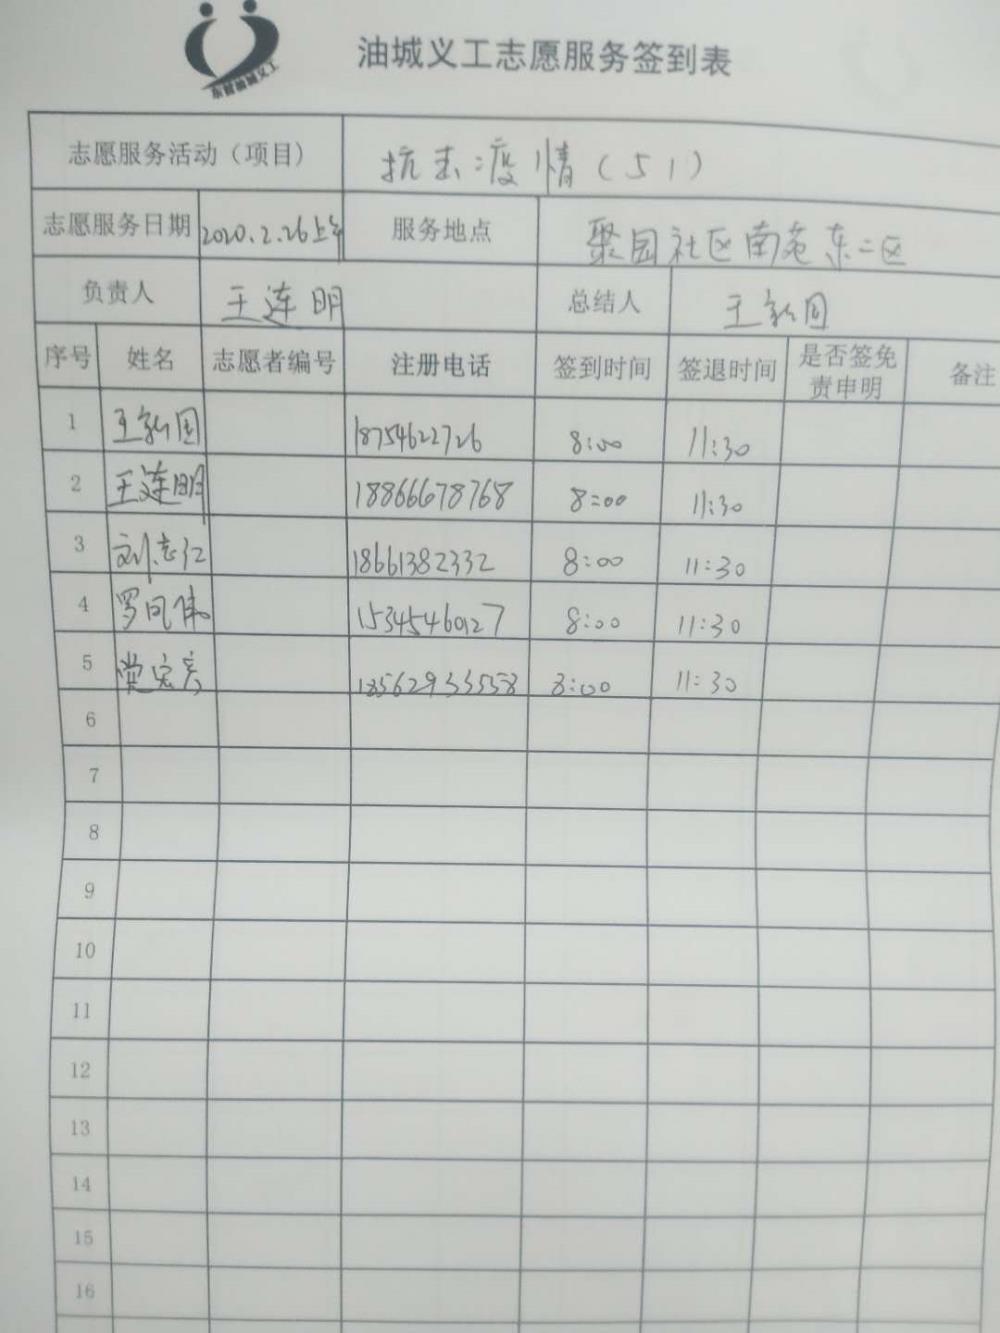 东营油城义工
油城义工志愿服务签到表
志愿服务活动（项目） 抗击疫情（51）
志愿服务日期 2020.2.26上午 服务地点 聚园社区南苑东二区
负责人 王连明 总结人 王新国
序号 姓名 志愿者编号 注册电话 签到时间 签退时间 是否签免责申明 备注
1 王新国 18754622726 8:00 11:30
2 王连明 18866678768 8:00 11:30
3 刘志江 18661382332 8:00 11:30
4 罗凤伟 15345460127 8:00 11:30
5 8:00 11:30
6
7
8
9
10
11
12
13
14
15
16